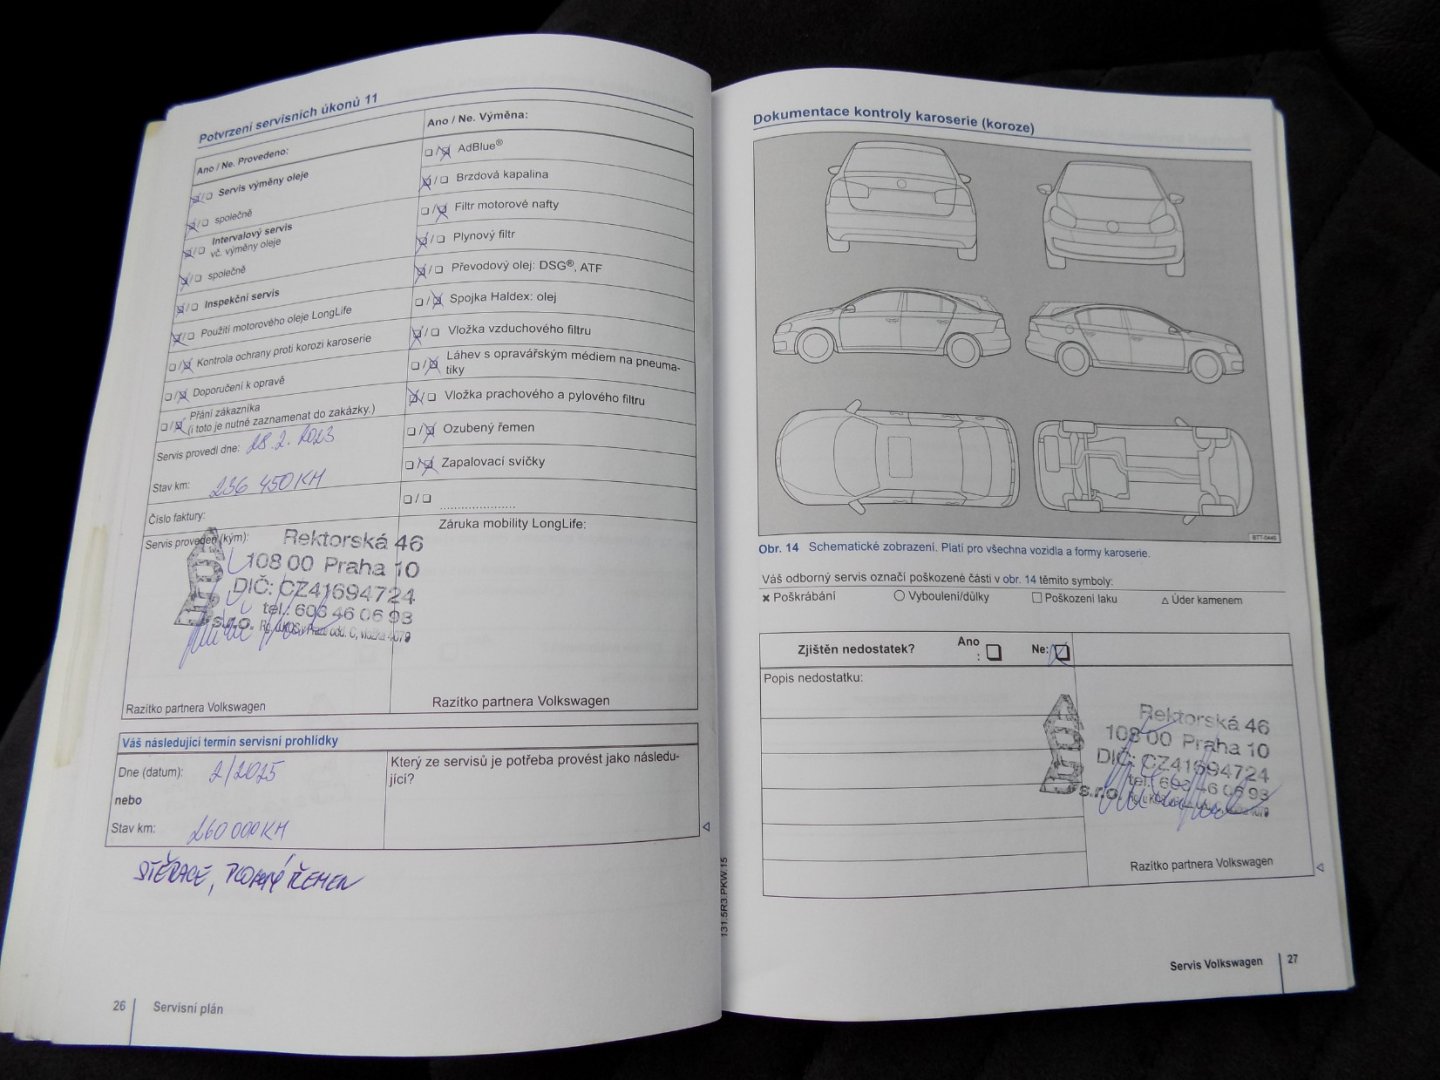 Potvrzení servisních úkonů 11
Ano / Ne. Provedeno:
Servis výměny oleje
společně
Intervalový servis
vč. výměny oleje
společně
Inspekční servis
Použití motorového oleje LongLife
Kontrola ochrany proti korozi karoserie
Doporučení k opravě
Přání zákazníka
(i toto je nutné zaznamenat do zakázky.)
Servis provedl dne: 28.2.2023
Stav km: 236 450 KM
Číslo faktury:
Servis proveden (kým):
Rektorská 46
108 00 Praha 10
DIČ: CZ41694724
tel.: 603 46 06 93
s.r.o.
Razítko partnera Volkswagen
Ano / Ne. Výměna:
AdBlue®
Brzdová kapalina
Filtr motorové nafty
Plynový filtr
Převodový olej: DSG®, ATF
Spojka Haldex: olej
Vložka vzduchového filtru
Láhev s opravářským médiem na pneuma-
tiky
Vložka prachového a pylového filtru
Ozubený řemen
Zapalovací svíčky
Záruka mobility LongLife:
Razítko partnera Volkswagen
Váš následující termín servisní prohlídky
Dne (datum): 2/2025
nebo
Stav km: 260 000 KM
Který ze servisů je potřeba provést jako následu-
jící?
STĚRAČE, ŘEMEN
26 Servisní plán
131.5R3.PKW.15
Dokumentace kontroly karoserie (koroze)
Obr. 14 Schematické zobrazení. Platí pro všechna vozidla a formy karoserie.
Váš odborný servis označí poškozené části v obr. 14 těmito symboly:
Poškrábání Vyboulení/důlky Poškození laku Úder kamenem
Zjištěn nedostatek? Ano
: Ne:
Popis nedostatku:
Rektorská 46
108 00 Praha 10
DIČ: CZ41694724
tel.: 603 46 06 93
s.r.o.
Razítko partnera Volkswagen
Servis Volkswagen 27